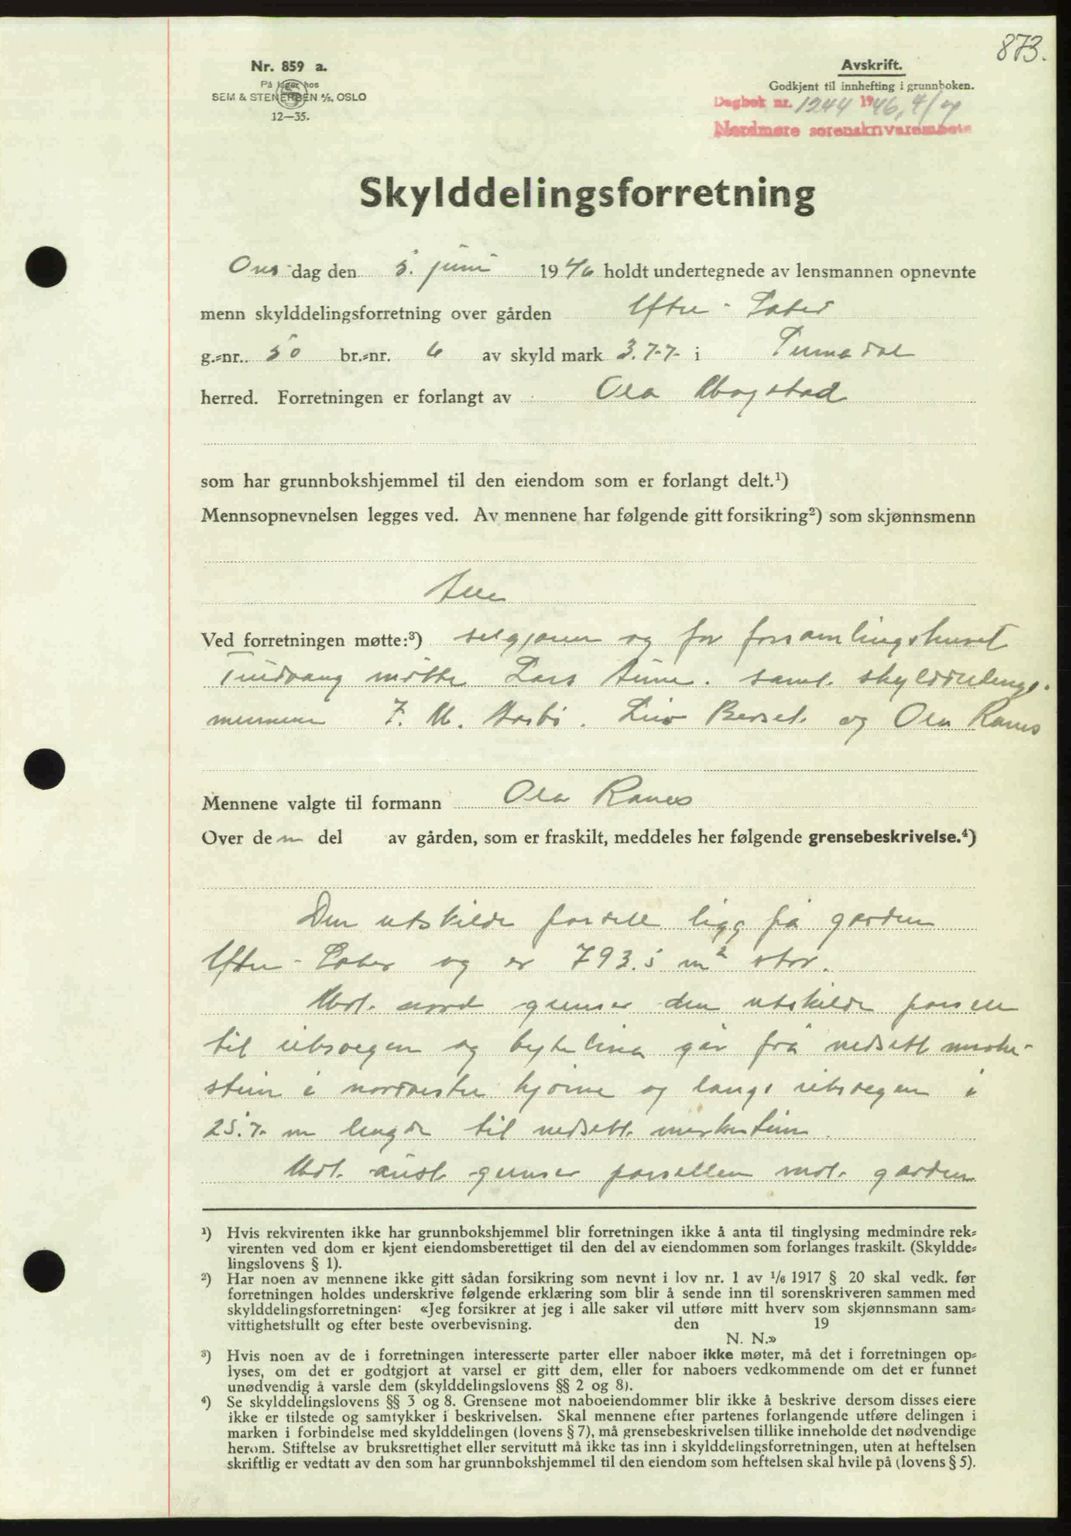 873.
Nr. 859 a.
På lager hos
SEM & STENERSEN A/S, OSLO
12—35.
Avskrift.
Godkjent til innhefting i grunnboken.
Dagbok nr. 1244 1946, 4/7
Nordmøre sorenskriverembete
Skylddelingsforretning
Ons dag den 5. juni 1946 holdt undertegnede av lensmannen opnevnte
menn skylddelingsforretning over gården Øfire - Sæter
g.=nr. 50 br.=nr. 6 av skyld mark 3.77 i Surnadal
herred. Forretningen er forlangt av Ola Mogstad
som har grunnbokshjemmel til den eiendom som er forlangt delt.¹)
Mennsopnevnelsen legges ved. Av mennene har følgende gitt forsikring²) som skjønnsmenn
Alle
Ved forretningen møtte:³) selgjaren og for forsamlingshuset
Tindvang møtte Lars Aune. samt skylddelings-
mennene J. M. Aasbø. Liv Berset og Ola Ranes
Mennene valgte til formann Ola Ranes
Over den del av gården, som er fraskilt, meddeles her følgende grensebeskrivelse.⁴)
Den utskilde parsell ligg på garden
Øfire - Sæter og er 793.5 m² stor.
Mot nord grenser den utskilde parsell
til riksvegen og bytelina går frå nedsett merke-
stein i nordvestre hjørne og langs riksvegen i
25.7 m lengde til nedsett merkestein.
Mot aust grenser parsellen mot garden
¹) Hvis rekvirenten ikke har grunnbokshjemmel blir forretningen ikke å anta til tinglysing medmindre rek=
virenten ved dom er kjent eiendomsberettiget til den del av eiendommen som forlanges fraskilt. (Skyldde=
lingslovens § 1).
²) Har noen av mennene ikke gitt sådan forsikring som nevnt i lov nr. 1 av 1/6 1917 § 20 skal vedk. før
forretningen holdes underskrive følgende erklæring som blir å sende inn til sorenskriveren sammen med
skylddelingsforretningen: «Jeg forsikrer at jeg i alle saker vil utføre mitt hverv som skjønnsmann sam=
vittighetsfullt og efter beste overbevisning. den 19
N. N.»
³) Hvis noen av de i forretningen interesserte parter eller naboer ikke møter, må det i forretningen op=
lyses, om det er godtgjort at varsel er gitt dem, eller for naboers vedkommende om det er funnet
unødvendig å varsle dem (skylddelingslovens §§ 2 og 8).
⁴) Se skylddelingslovens §§ 3 og 8. Grensene mot naboeiendommer blir ikke å beskrive dersom disses eiere
ikke er tilstede og samtykker i beskrivelsen. Skal mennene efter partenes forlangende utføre delingen i
marken i forbindelse med skylddelingen (lovens § 7), må grensebeskrivelsen tillike inneholde det nødvendige
herom. Stiftelse av bruksrettighet eller servitutt må ikke tas inn i skylddelingsforretningen, uten at heftelsen
skriftlig er vedtatt av den som har grunnbokshjemmel til den eiendom som heftelsen skal hvile på (lovens § 5).